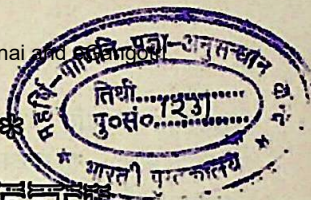 nai and eGangotri
महर्षि-पाणिनि प्रज्ञा-अनुसन्धान
तिथी..............
पु०सं० 1231
* भारती पुस्तकालय *